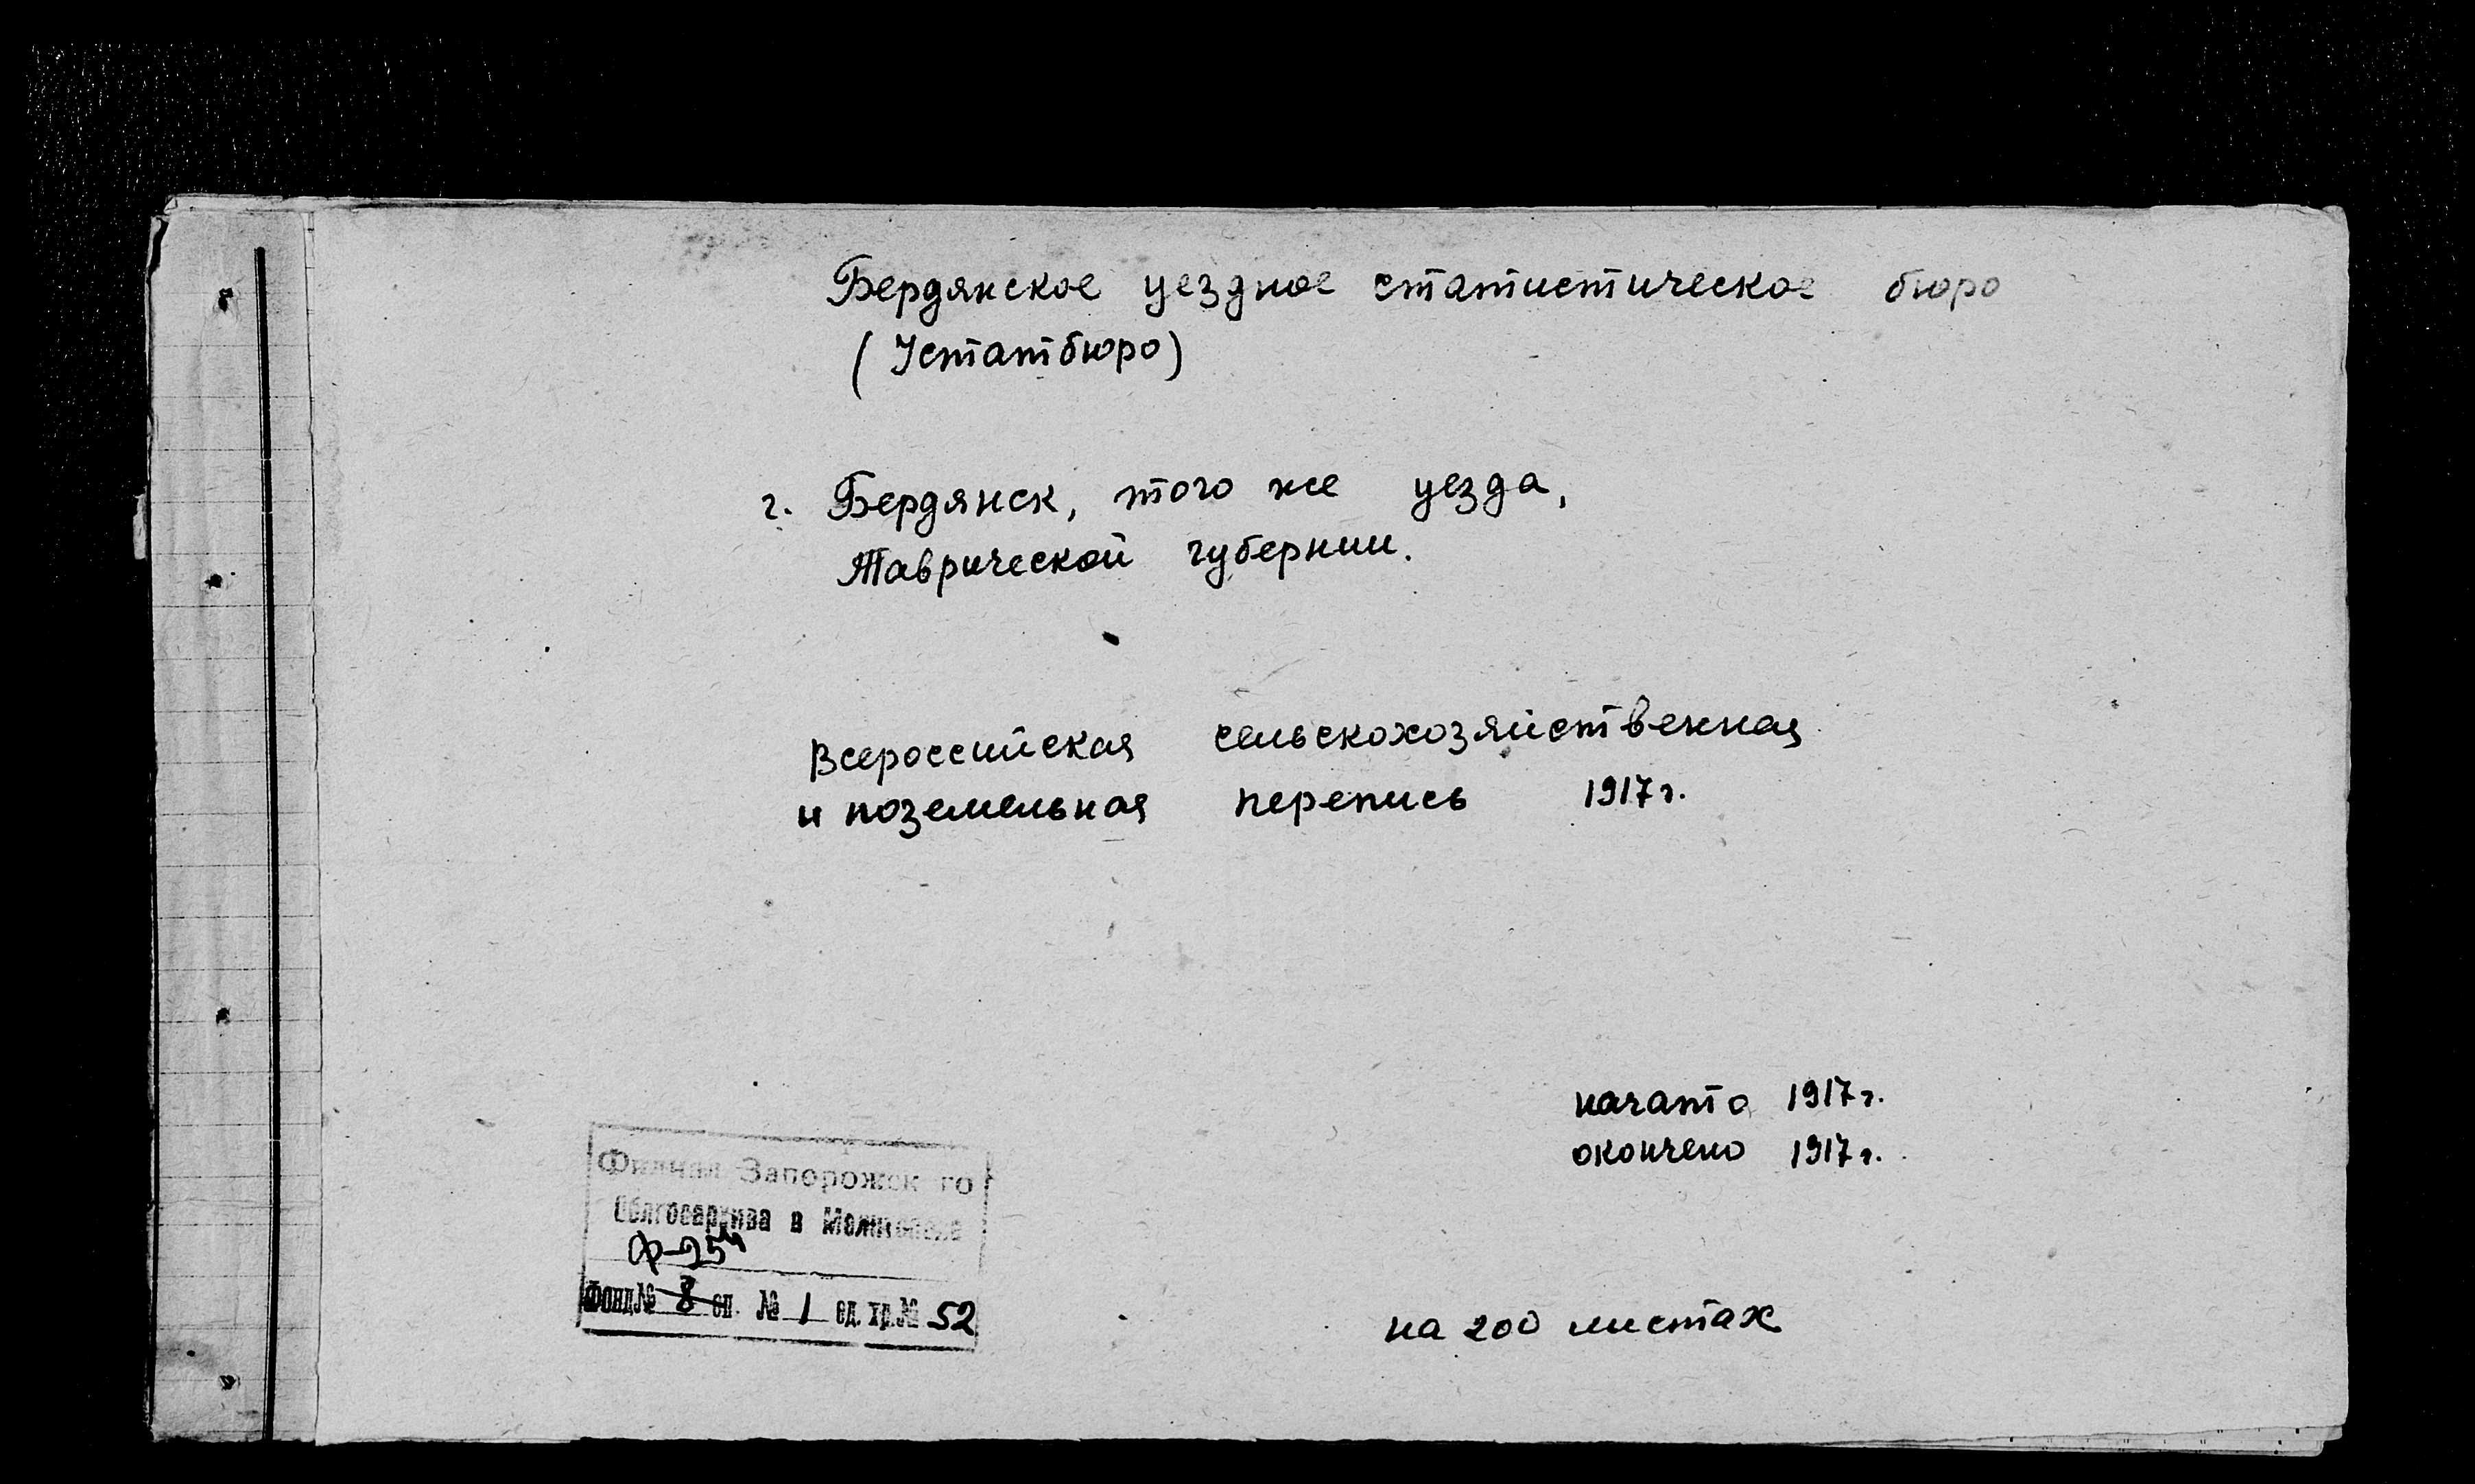 Бердянское уездное статистическое бюро
(Устатбюро)
г. Бердянск, того же уезда,
Таврической губернии.
Всероссийская сельскохозяйственная
и поземельная перепись 1917 г.
начато 1917 г.
окончено 1917 г.
Филиал Запорожск го
Облгосархива в Мелитополе
Фонд № 8 оп. № 1 ед. хр. № 52
на 200 листах